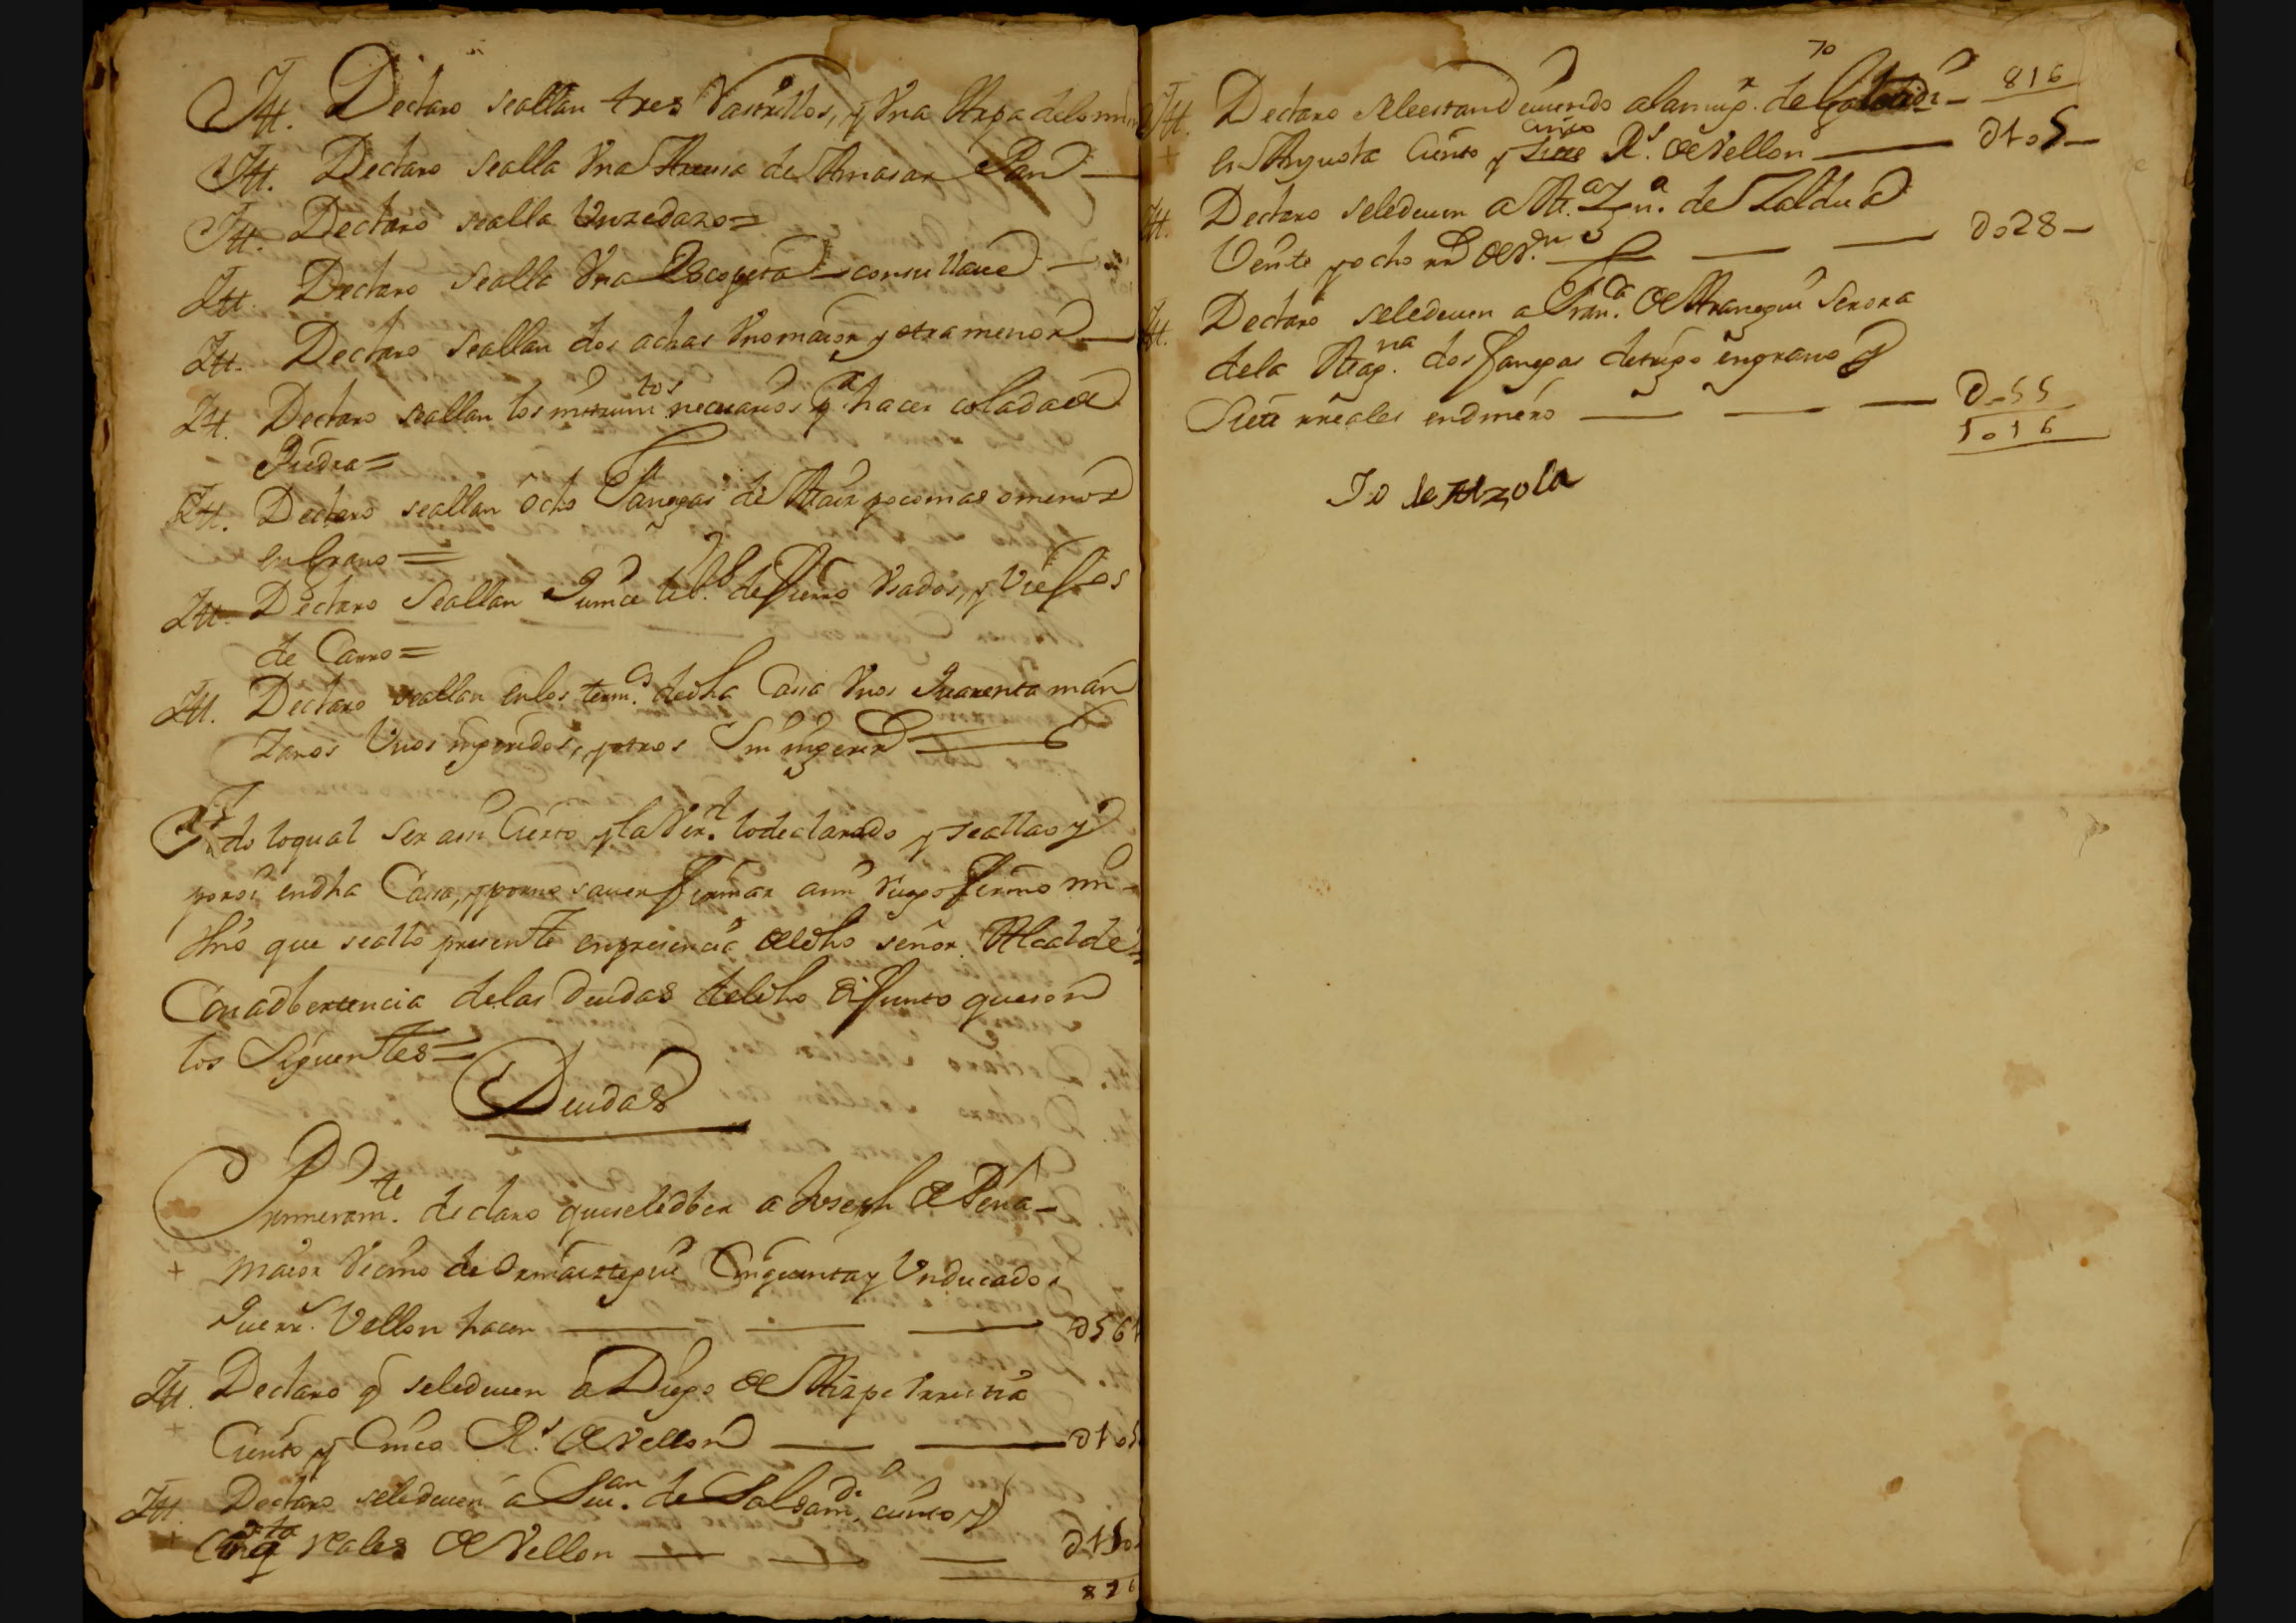 Itt. Declaro seallan tres Rastrillos, y Vna Arpa delomi
Itt. Declaro sealla Vna Artesa de Amasar Pan
Itt. Declaro sealla Un zedazo=
Itt. Declaro sealla Vna Escopeta con su llaue
Itt. Declaro seallan dos achas Vno maior y otra menor
Itt. Declaro seallan los instrumtos necesarios pa hacer colada de
Piedra=
Itt. Declaro seallan ocho fanegas de Maiz poco mas o menos
en Grano=
Itt. Declaro seallan Quince lib.s de fierro Vsados, y Viejos
de Carro=
Itt. Declaro seallan en los termos dedha Casa Vnos Quarenta man
zanos Vnos ingeridos, y otros Sin ingerir
Todo loqual ser assi Cierto y la Verd. lo declarado y seallao y
por si endha Cassa, y por no sauer firmar a mi Ruego firmo mi
hijo que seallo presente en presencia deldho señor Alcalde
Con adbertencia delas Deudas deldho difunto que son
los Siguientes=
Deudas
Primeramte. declaro que seledben a Joseph de Peña
maior Vecino de Ormaiztegui Cinquenta y Un ducados
Que rrs. Vellon hacen 561
Itt. Declaro q seledeuen a Diego de Aizpeurrutia
Ciento y Cinco Rs. de Vellon 105
Itt. Declaro seledeuen a Juan. de ciento y
Cinqta reales de Vellon 150
816
70
816
Itt. Declaro seleestan deuiendo ala muger. de
en Argueta Ciento y cinco Rs. de Vellon 0105
Itt. Declaro seledeuen a de Zaldua
Veinte y ocho rrs de Vn. 028
Itt. Declaro seledeuen a Franca. de Aranegui Serora
dela dos fanegas de trigo en grano y
Siete rreales en dinero 055
1016